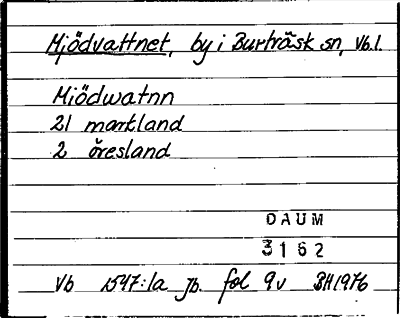 Mjödvattnet, by i Burträsk sn, Vb.l.
Miödwatnn
21 markland
2 öresland
DAUM
3162
Vb 1547:1a Jb. fol 9v BH1976